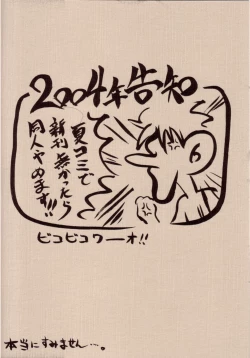 2004年告知
夏コミで
新刊無かったら
同人やめます!!
6
ピコピコワーオ!!
本当にすみません…。